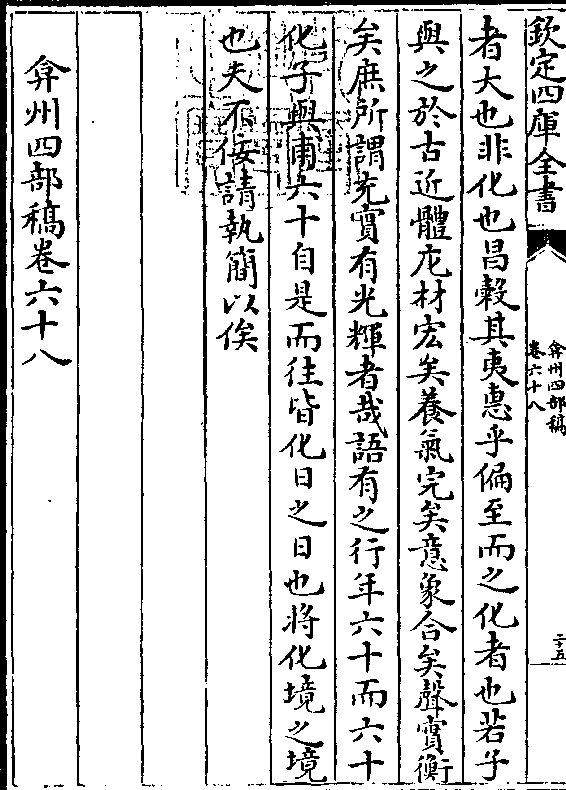 欽定四庫全書
弇州四部稿
卷六十八
二十五
者大也非化也昌穀其夷惠乎偏至而之化者也若子
與之於古近體庀材宏矣養氣完矣意象合矣聲實衡
矣庶所謂充實有光輝者哉語有之行年六十而六十
化子與甫六十自是而往皆化日之日也將化境之境
也夫不佞請執簡以俟
弇州四部稿卷六十八